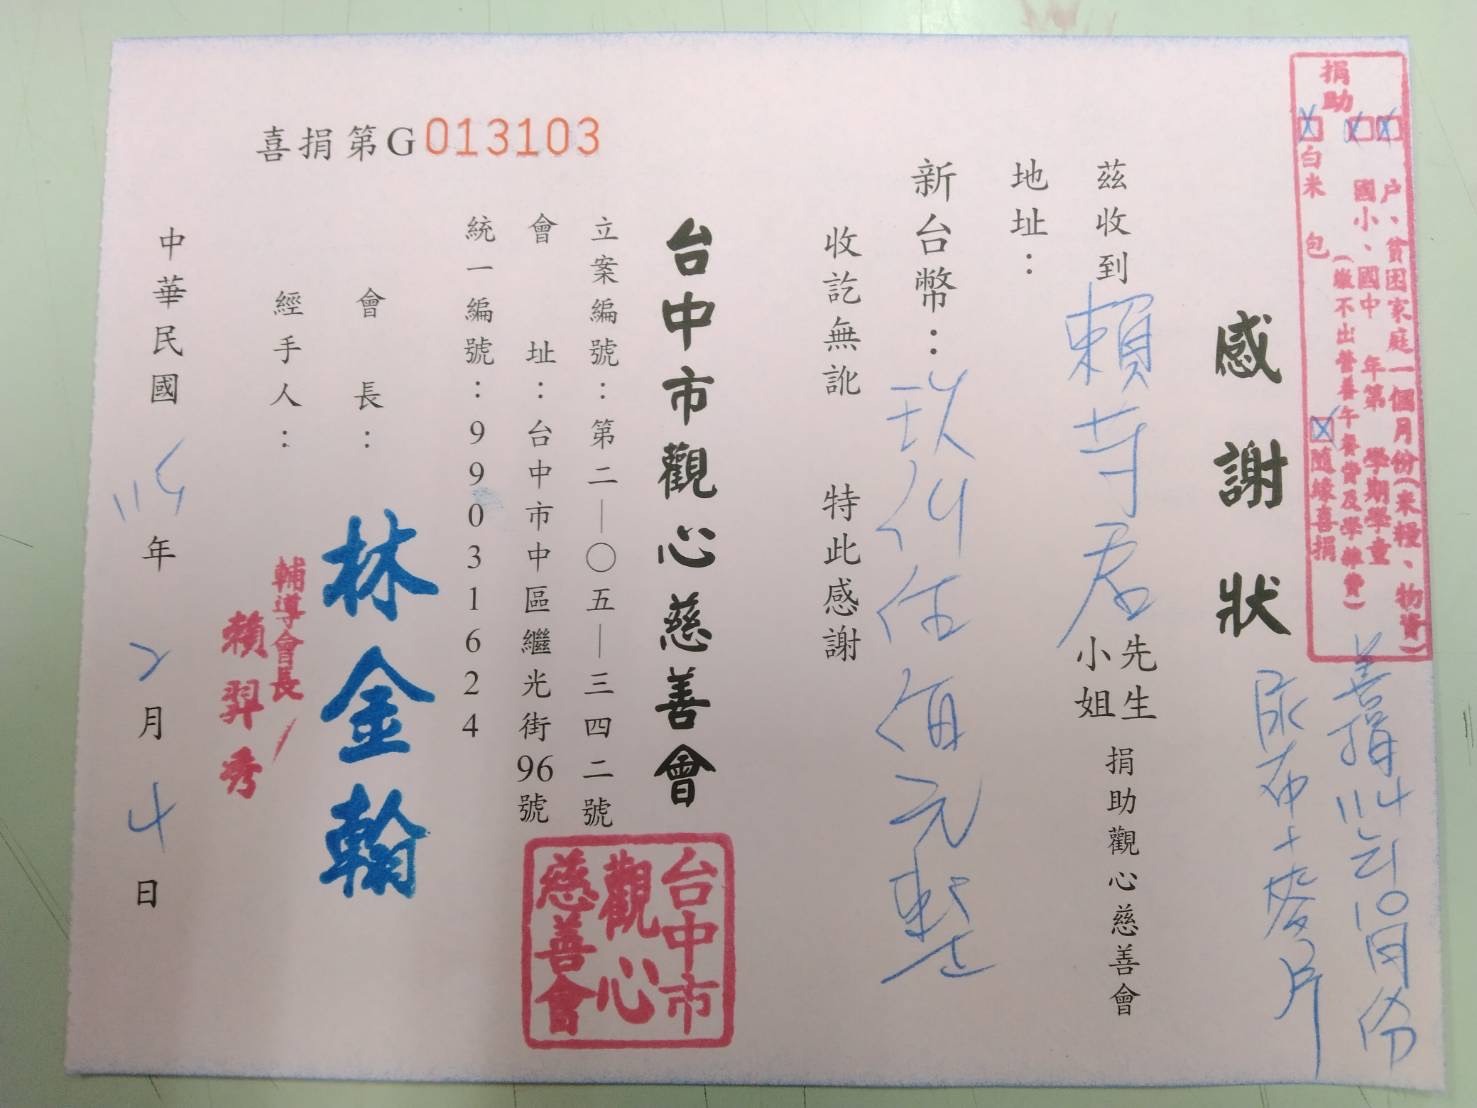 捐助
☒戶、貧困家庭一個月份(米糧、物資)
☒國小、國中 年第 學期學童
(繳不出營養午餐費及學雜費)
☒白米 包 ☒隨緣喜捐
善捐114年10月份
尿布+麥片
感謝狀
茲收到賴君先生小姐捐助觀心慈善會
地址：
新台幣：玖仟伍佰元整
收訖無訛 特此感謝
台中市觀心慈善會
立案編號：第二—〇五—三四二號
會址：台中市中區繼光街96號
統一編號：99031624
台中市
觀心
慈善會
會長：林金翰
經手人：
輔導會長
賴羿秀
中華民國115年2月4日
喜捐第G013103